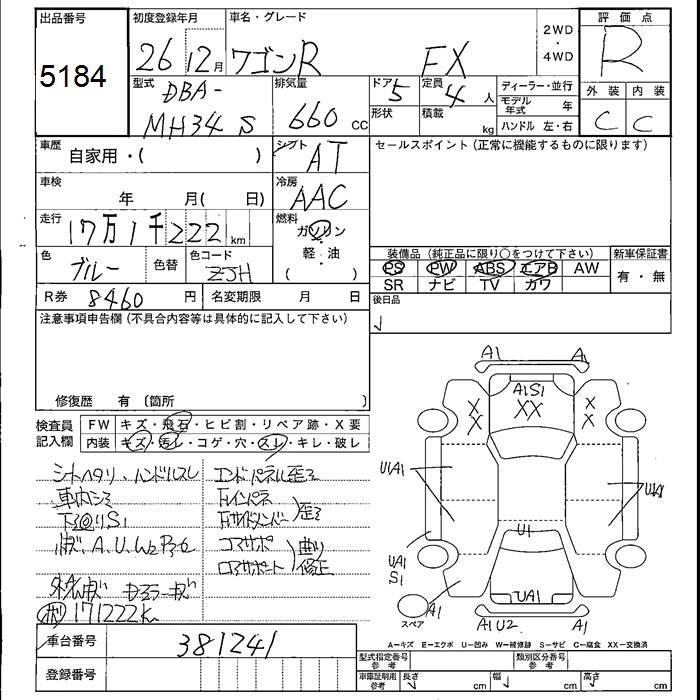 出品番号
5184
初度登録年月
26 12月
車名・グレード
ワゴンR FX
2WD
・
4WD
評価点
R
型式
DBA-
MH34 S
排気量
660 CC
ドア
5
形状
定員
4 人
積載
kg
ディーラー・並行
モデル年式 年
ハンドル 左・右
外装
C
内装
C
車歴
自家用・( )
シフト
AT
セールスポイント (正常に機能するものに限ります)
車検
年 月( 日)
冷房
AAC
走行
17万1千222 km
燃料
ガソリン
・
軽・油
( )
色
ブルー
色替
色コード
ZJH
装備品 (純正品に限り○をつけて下さい)
PS PW ABS エアB AW
SR ナビ TV カワ
新車保証書
有・無
R券 8460 円
名変期限 月 日
後日品
注意事項申告欄 (不具合内容等は具体的に記入して下さい)
修復歴 有 〔箇所 〕
検査員
記入欄
FW キズ・飛石・ヒビ割・リペア跡・X要
内装 キズ・汚レ・コゲ・穴・スレ・キレ・破レ
シートヘタリ、ハンドルスレ
車内シミ
下回りS1
171222K
エンドパネル歪ミ
歪ミ
コアサポ
曲り
修正
A1 A1
A1S1
XX
X
X
X
X
U1A1
U1
UA1
S1
A1
UA1
A1U2 A1
スペア
車台番号
381241
登録番号
A─キズ E─エクボ U─凹み W─補修跡 S─サビ C─腐食 XX─交換済
型式指定番号
参考
類別区分番号
参考
車庫証明用
参考
長さ cm
幅 cm
高さ cm